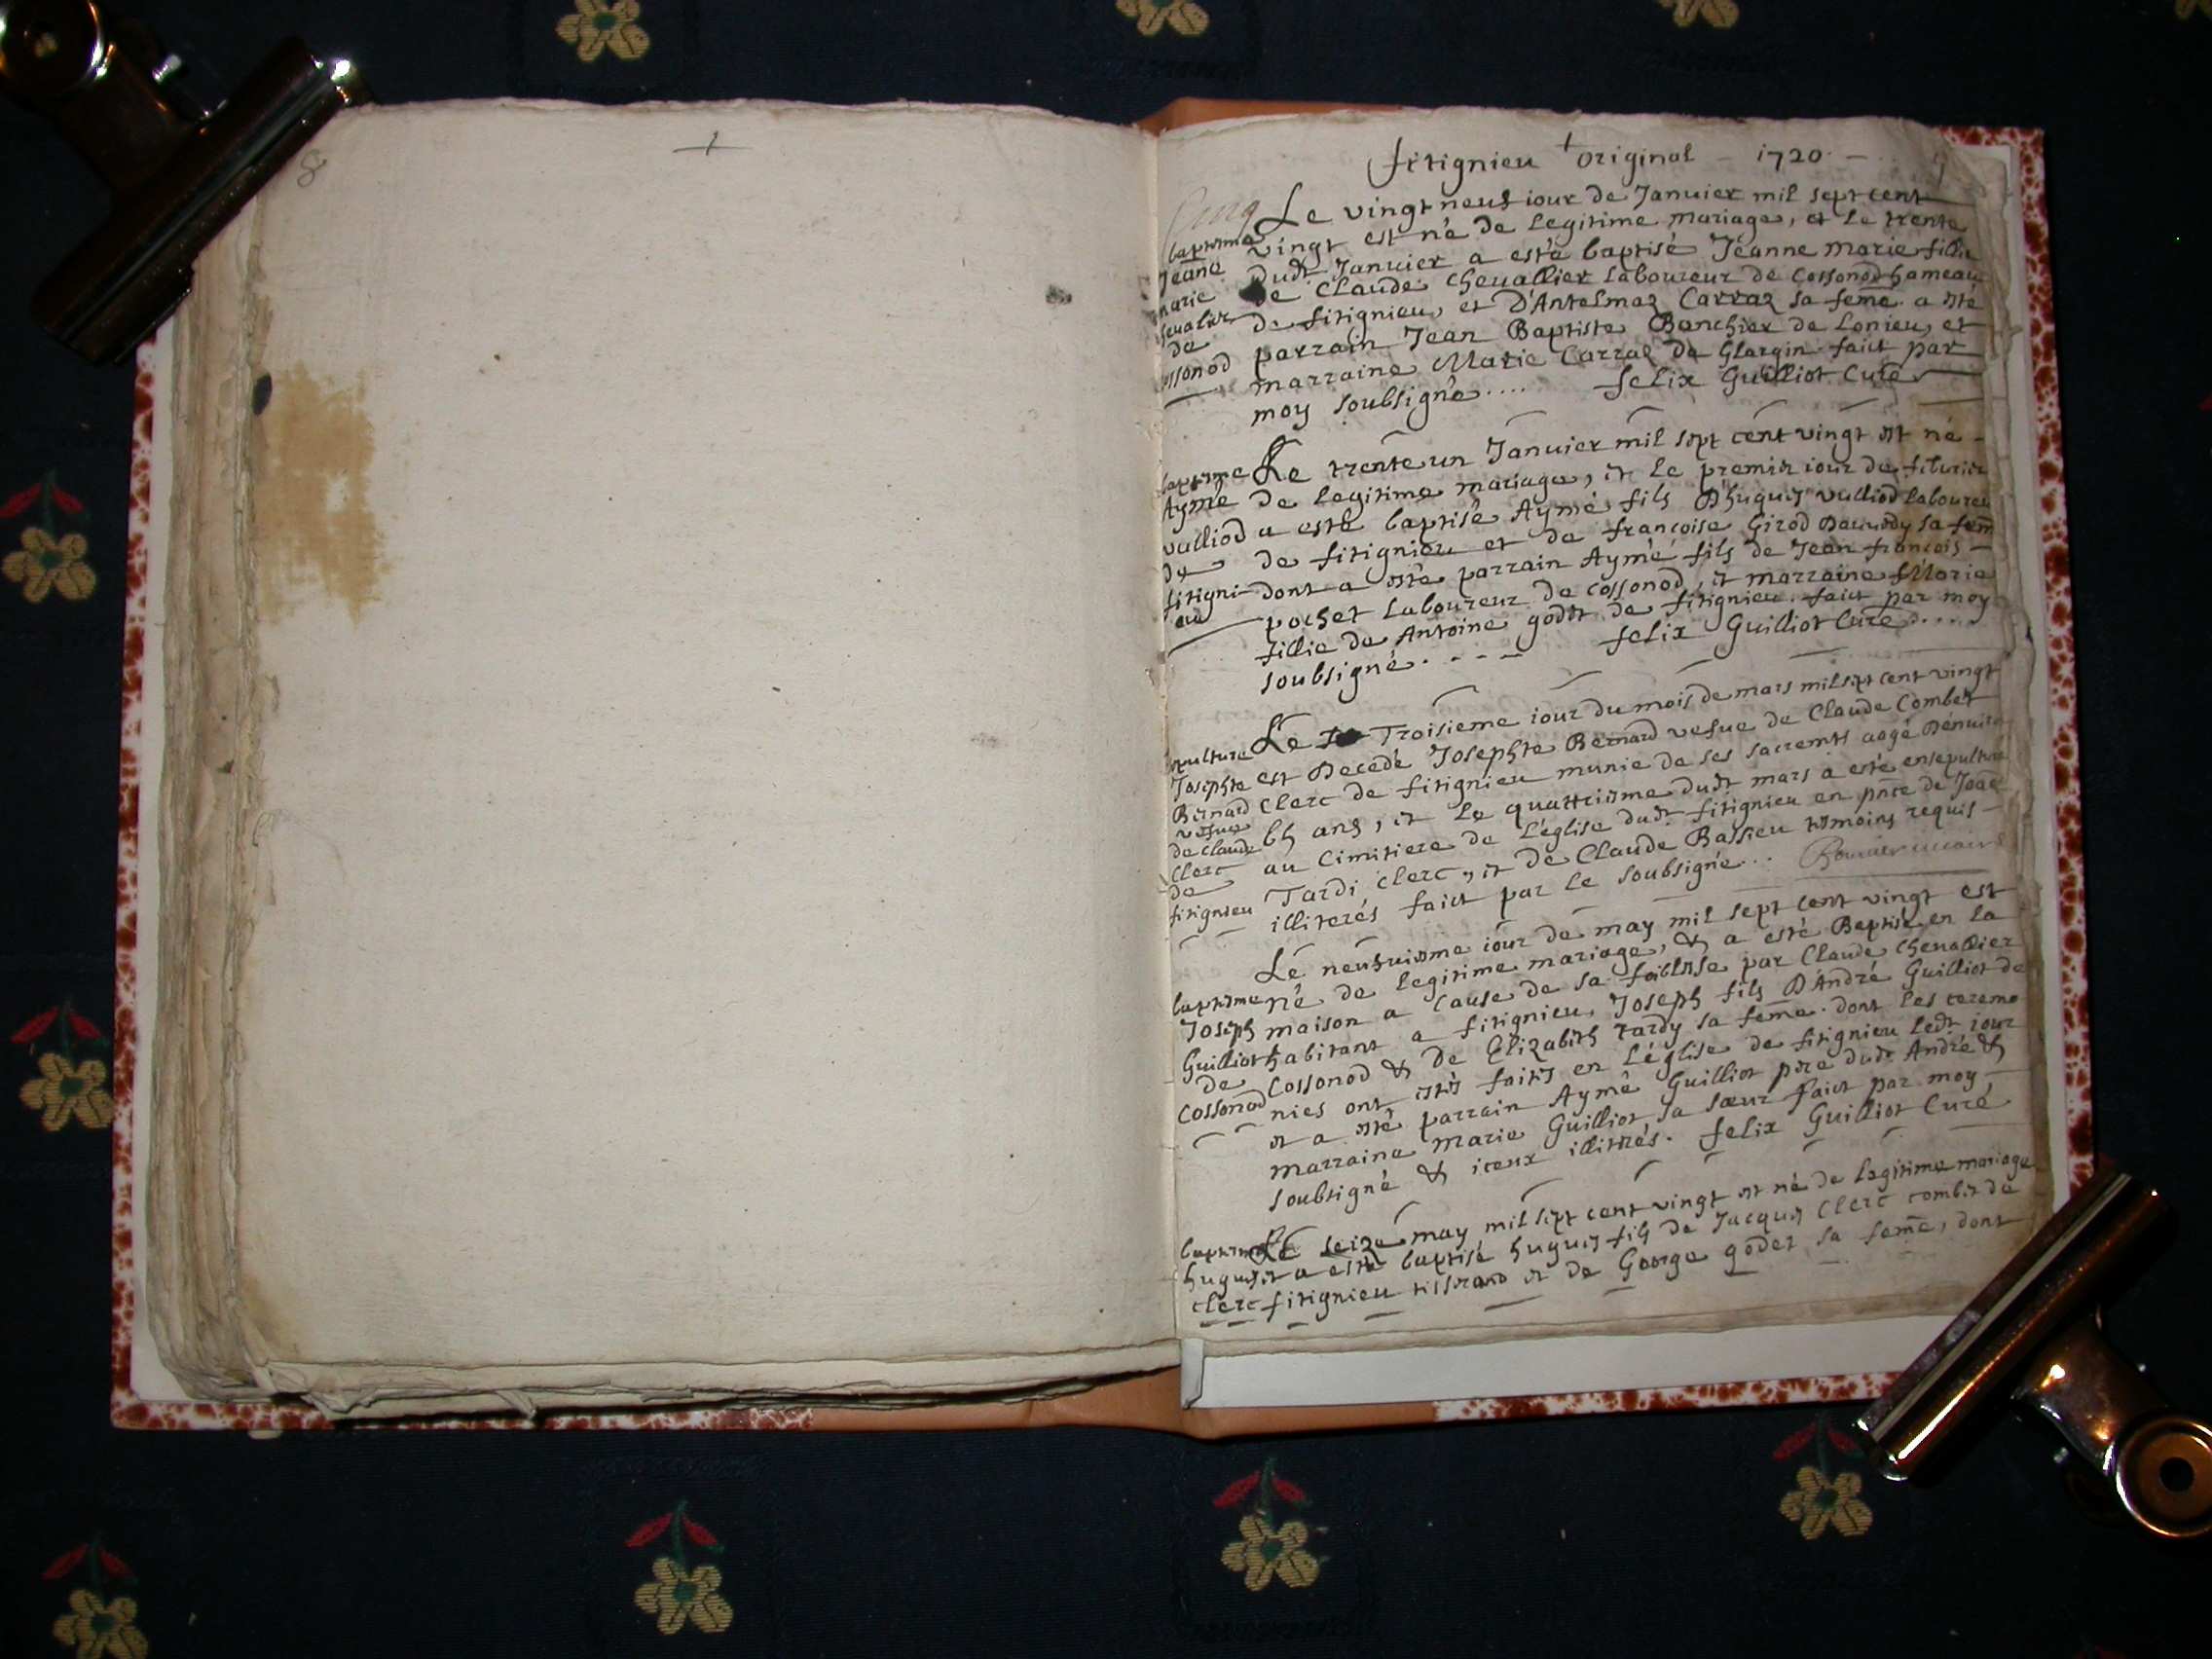 8
fitignieu original - 1720 -
Cinq
Le vingt neuf iour de Januier mil sept cent
vingt est né de legitime mariage, et le trente
dudt Januier a esté baptisé Jeanne marie fillie
de Claude Cheuallier laboureur de Cossonod hameau
de fitignieu, et D'Antelmaz Carraz sa feme. a esté
parrain Jean Baptiste Banchier de Lonieu, et
marraine Marie Carraz de Glargin faict par
moy soubsigné.... felix Guilliot Curé
baptisme
Jeane
marie
cheualier
de
ossonod
Le trente un Januier mil sept cent vingt est né
de legitime mariage, et le premier iour de feburier
a esté baptisé Aymé fils D'huguis vulliod laboureu
de fitignieu et de françoise Girod Daunody sa fem
dont a esté parrain Aymé fils de Jean françois
pochet laboureur de Cossonod, et marraine Marie
fillie de Antoine godet de fitignieu. faict par moy
soubsigné. - - - felix Guilliot Curé....
baptisme
Aymé
vulliod
de
fitigni-
eu
Le Troisieme iour du mois de mars mil sept cent vingt
est Decedé Josephte Bernard vefue de Claude Combet
Clerc de fitignieu munie de ses sacremts aagé Denuiro
65 ans, et le quattriesme dudt mars a esté ensepulture
au Cimitiere de L'église dudt fitignieu en pnce de
Tardi Clerc, et de Claude Bassieu tesmoins requis
illiterés faict par le soubsigné...
sepulture
Josephte
Bernard
vefue
de Claude
Clerc
de
fitignieu
Le neufuiesme iour de may mil sept cent vingt est
né de legitime mariage, & a esté Baptisé en la
maison a Cause de sa foiblesse par Claude Cheuallier
habitant a fitignieu, Joseph fils D'André Guilliot de
Cossonod & de Elizabeth tardy sa feme. dont les ceremo
nies ont estés faites en L'église de fitignieu ledt iour
et a esté parrain Aymé Guilliot pere dudt André &
marraine marie Guilliot sa sœur faict par moy
soubsigné & iceux illitrés. felix Guilliot Curé
baptisme
Joseph
Guilliot
de
Cossonod
Le seize may mil sept cent vingt est né de legitime mariage
et a esté baptisé huguis fils de Jacquis Clerc combet de
fitignieu tisserand et de George godet sa feme, dont
baptisme
huguis
clerc